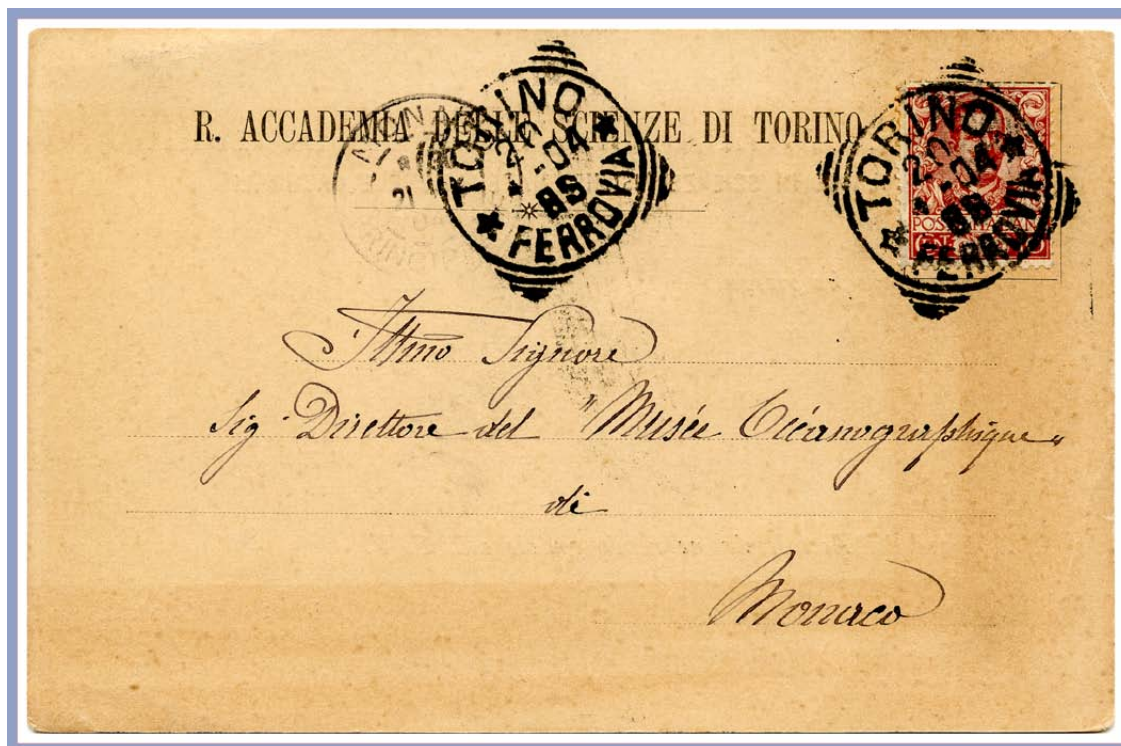 R. ACCADEMIA DELLE SCIENZE DI TORINO
TORINO
-04
FERROVIA
TORINO
20
-04
FERROVIA
21
Illmo Signore
Sig. Direttore del "Musée Océanographique"
di
Monaco